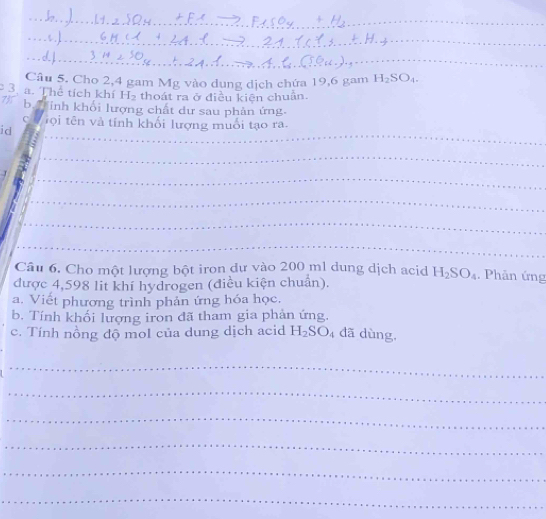 b.) H2SO4 + Fe → FeSO4 + H2
c.) 6HCl + 2Al → 2AlCl3 + H2
d.) 3H2SO4 + 2Al → Al2(SO4)3
Câu 5. Cho 2,4 gam Mg vào dung dịch chứa 19,6 gam H₂SO₄.
a. Thể tích khí H₂ thoát ra ở điều kiện chuẩn.
b. Tính khối lượng chất dư sau phản ứng.
gọi tên và tính khối lượng muối tạo ra.
Câu 6. Cho một lượng bột iron dư vào 200 ml dung dịch acid H₂SO₄. Phản ứng
được 4,598 lit khí hydrogen (điều kiện chuẩn).
a. Viết phương trình phản ứng hóa học.
b. Tính khối lượng iron đã tham gia phản ứng.
c. Tính nồng độ mol của dung dịch acid H₂SO₄ đã dùng.